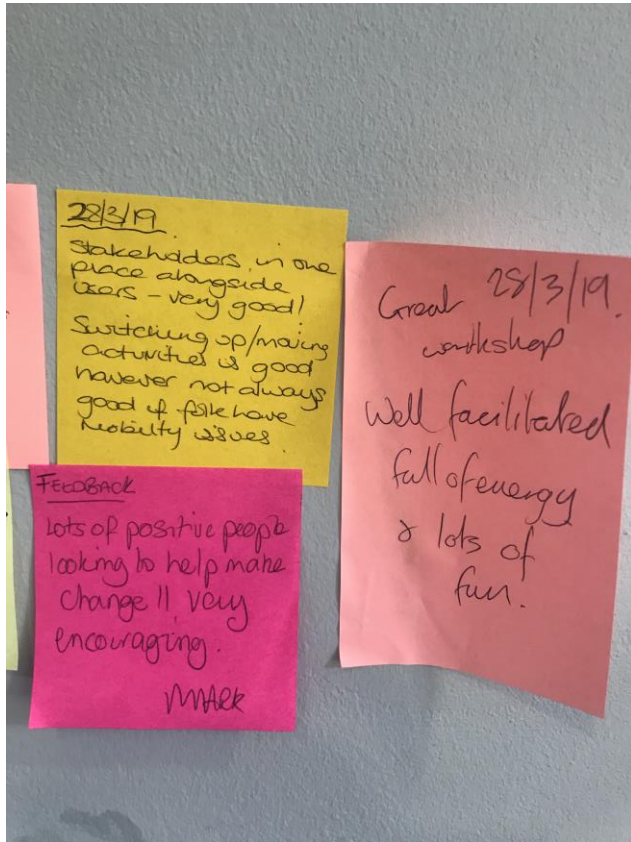 28/3/19
Stakeholders in one
place alongside
users - very good!
Switching up/moving
activities is good
however not always
good if folk have
mobility issues.
FEEDBACK
Lots of positive people
looking to help make
change!! very
encouraging.
MARK
28/3/19.
Great
workshop
Well facilitated
full of energy
& lots of
fun.